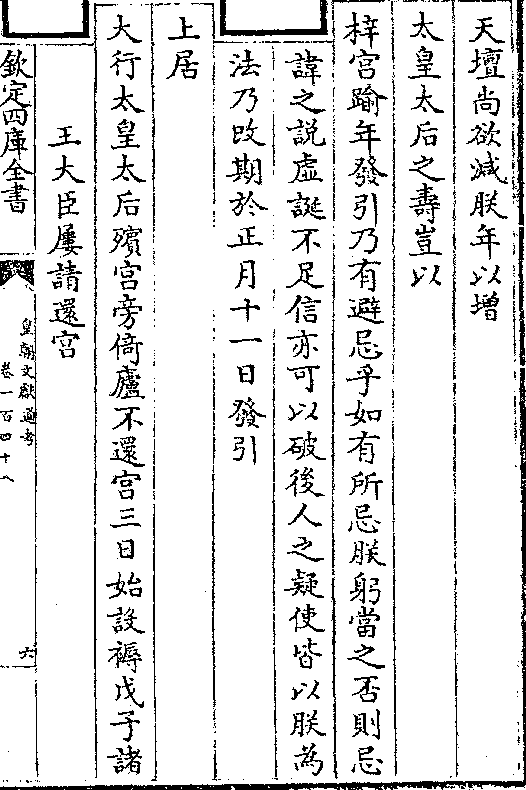 天壇尚欲減朕年以增
太皇太后之壽豈以
梓宮踰年發引乃有避忌乎如有所忌朕躬當之否則忌
諱之説虛誕不足信亦可以破後人之疑使皆以朕為
法乃改期於正月十一日發引
上居
大行太皇太后殯宮旁倚廬不還宮三日始設褥戊子諸
王大臣屢請還宮
欽定四庫全書
皇朝文獻通考
卷一百四十八
六